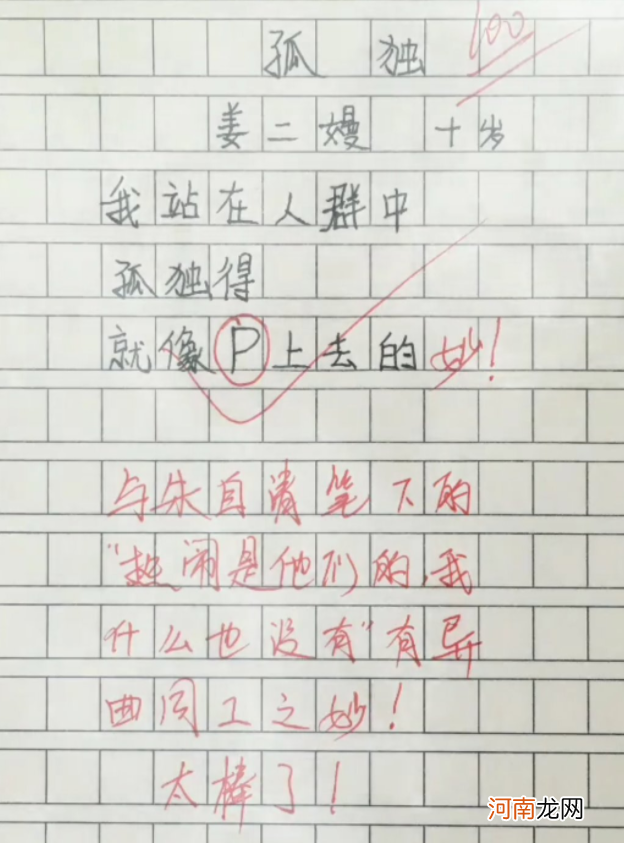 孤独 100
姜二嫚 十岁
我站在人群中
孤独得
就像P上去的 妙!
与朱自清笔下的
“热闹是他们的,我
什么也没有”有异
曲同工之妙!
太棒了!
河南龙网